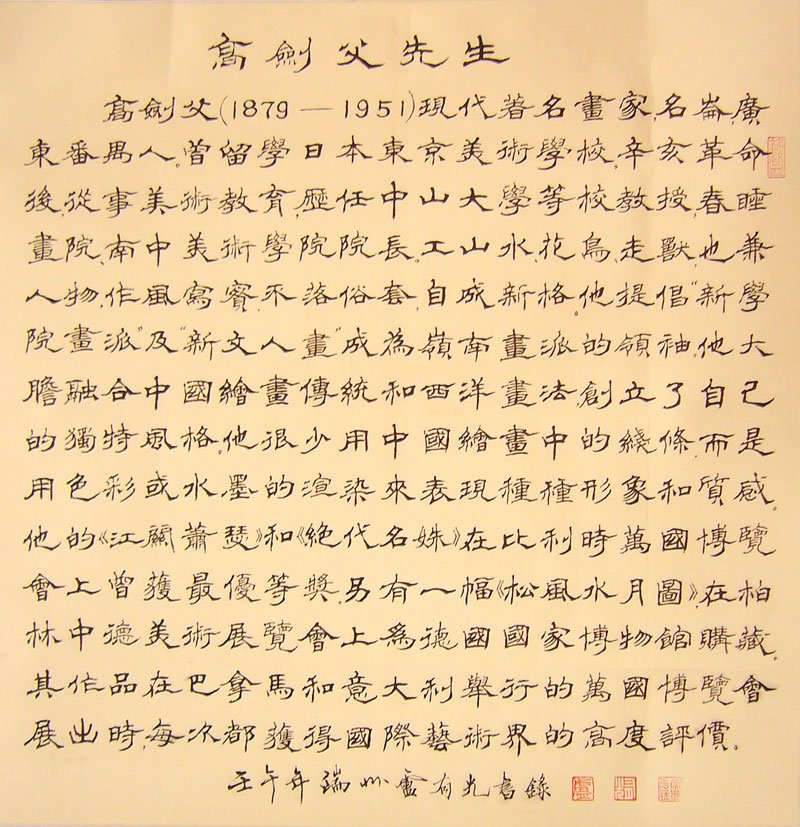 高劍父先生
高劍父(1879—1951)現代著名畫家,名崙,廣
東番禺人。曾留學日本東京美術學校。辛亥革命
後,從事美術教育,歷任中山大學等校教授,春睡
畫院、南中美術學院院長。工山水、花鳥、走獸,也兼
人物,作風寫實,不落俗套,自成新格。他提倡“新學
院畫派”及“新文人畫”成為嶺南畫派的領袖。他大
膽融合中國繪畫傳統和西洋畫法,創立了自己
的獨特風格。他很少用中國繪畫中的綫條,而是
用色彩或水墨的渲染來表現種種形象和質感。
他的《江關蕭瑟》和《絕代名姝》在比利時萬國博覽
會上曾獲最優等獎,另有一幅《松風水月圖》,在柏
林中德美術展覽會上為德國國家博物館購藏。
其作品在巴拿馬和意大利舉行的萬國博覽會
展出時,每次都獲得國際藝術界的高度評價。
壬午年瑞州盧有光書錄